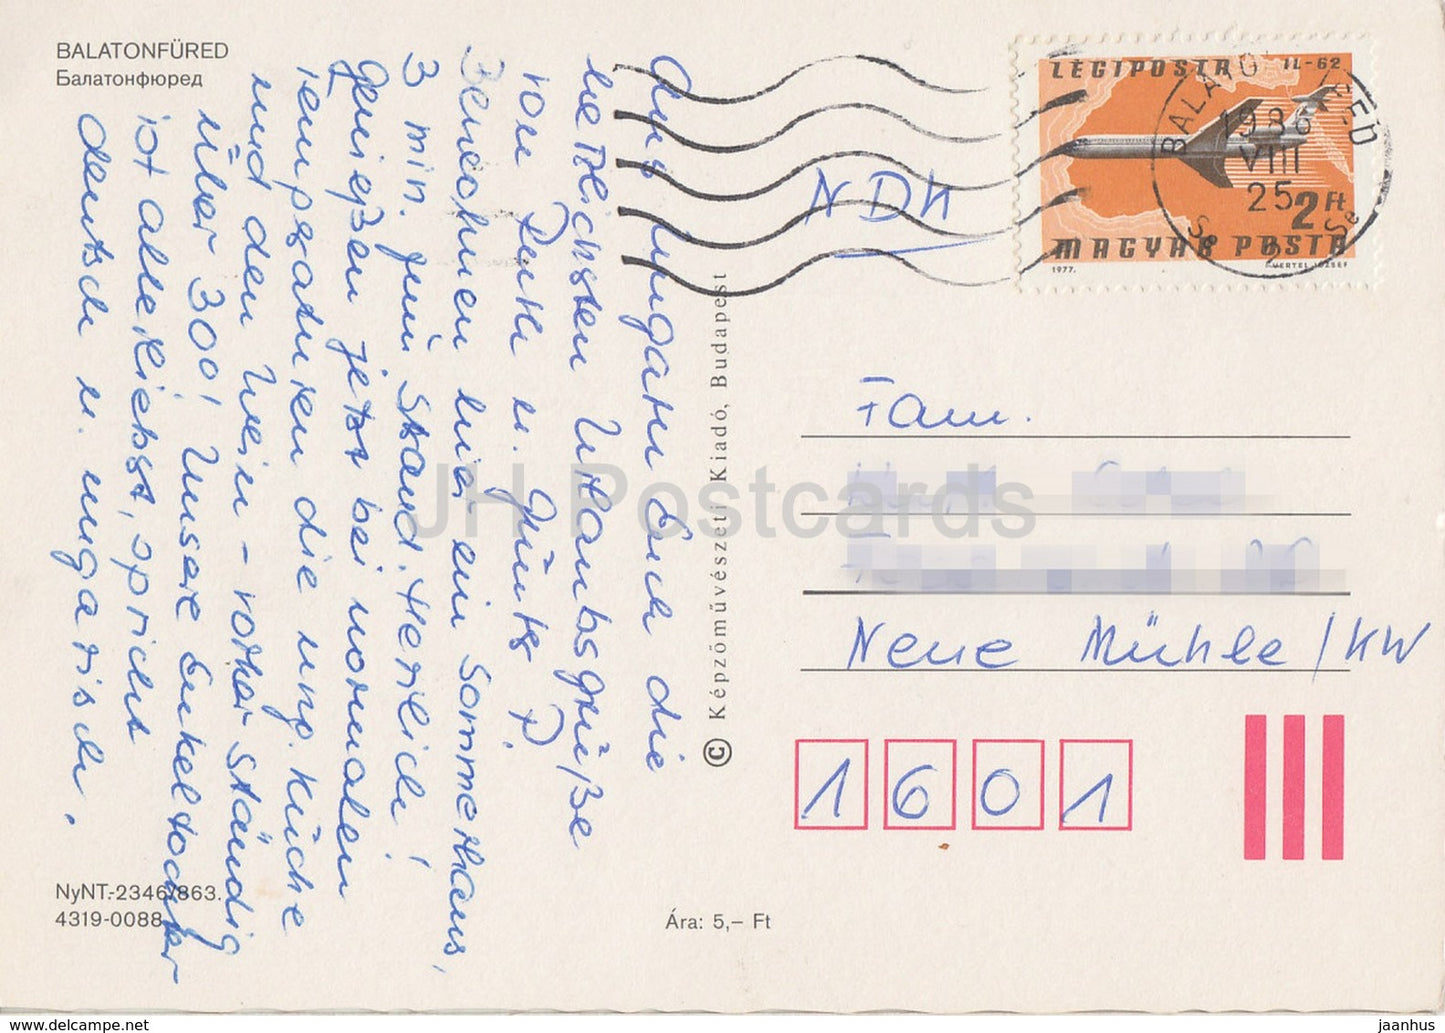 BALATONFÜRED
Балатонфюред
Aus Ungarn Euch die
herzlichsten Urlaubsgrüße
von
u.
Bewohnen hier ein Sommerhaus,
3 min. zum Strand. Herrlich!
Genießen jetzt bei normalen
Temperaturen die ung. Küche
und den Wein - vorher ständig
über 30°! Unsere Enkeltochter
ist allerliebst, spricht
deutsch u. ungarisch.
NyNT.-2346/863.
4319-0088
Ára: 5,– Ft
© Képzőművészeti Kiadó, Budapest
LÉGIPOSTA IL-62
2 Ft
MAGYAR POSTA
1977. VERTEL JÓZSEF
1986
VIII
25
NDK
Fam.
Neue Mühle/KW
1601
JH Postcards
www.delcampe.net
jaanhus